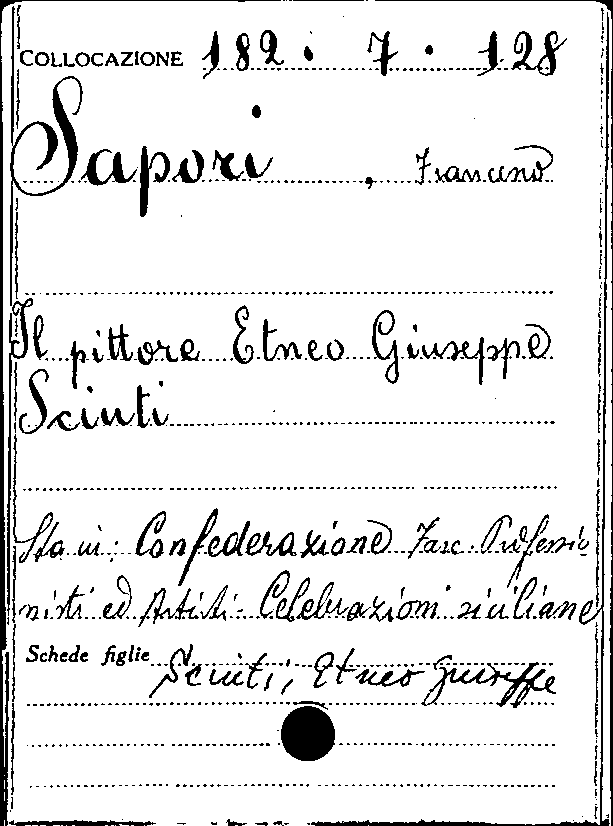 COLLOCAZIONE 182. 7. 128
Sapori, Francesco
Il pittore Etneo Giuseppe
Sciuti
Sta in: Confederazione Fasc. Professio-
nisti ed Artisti. Celebrazioni siciliane
Schede figlie Sciuti, Etneo Giuseppe